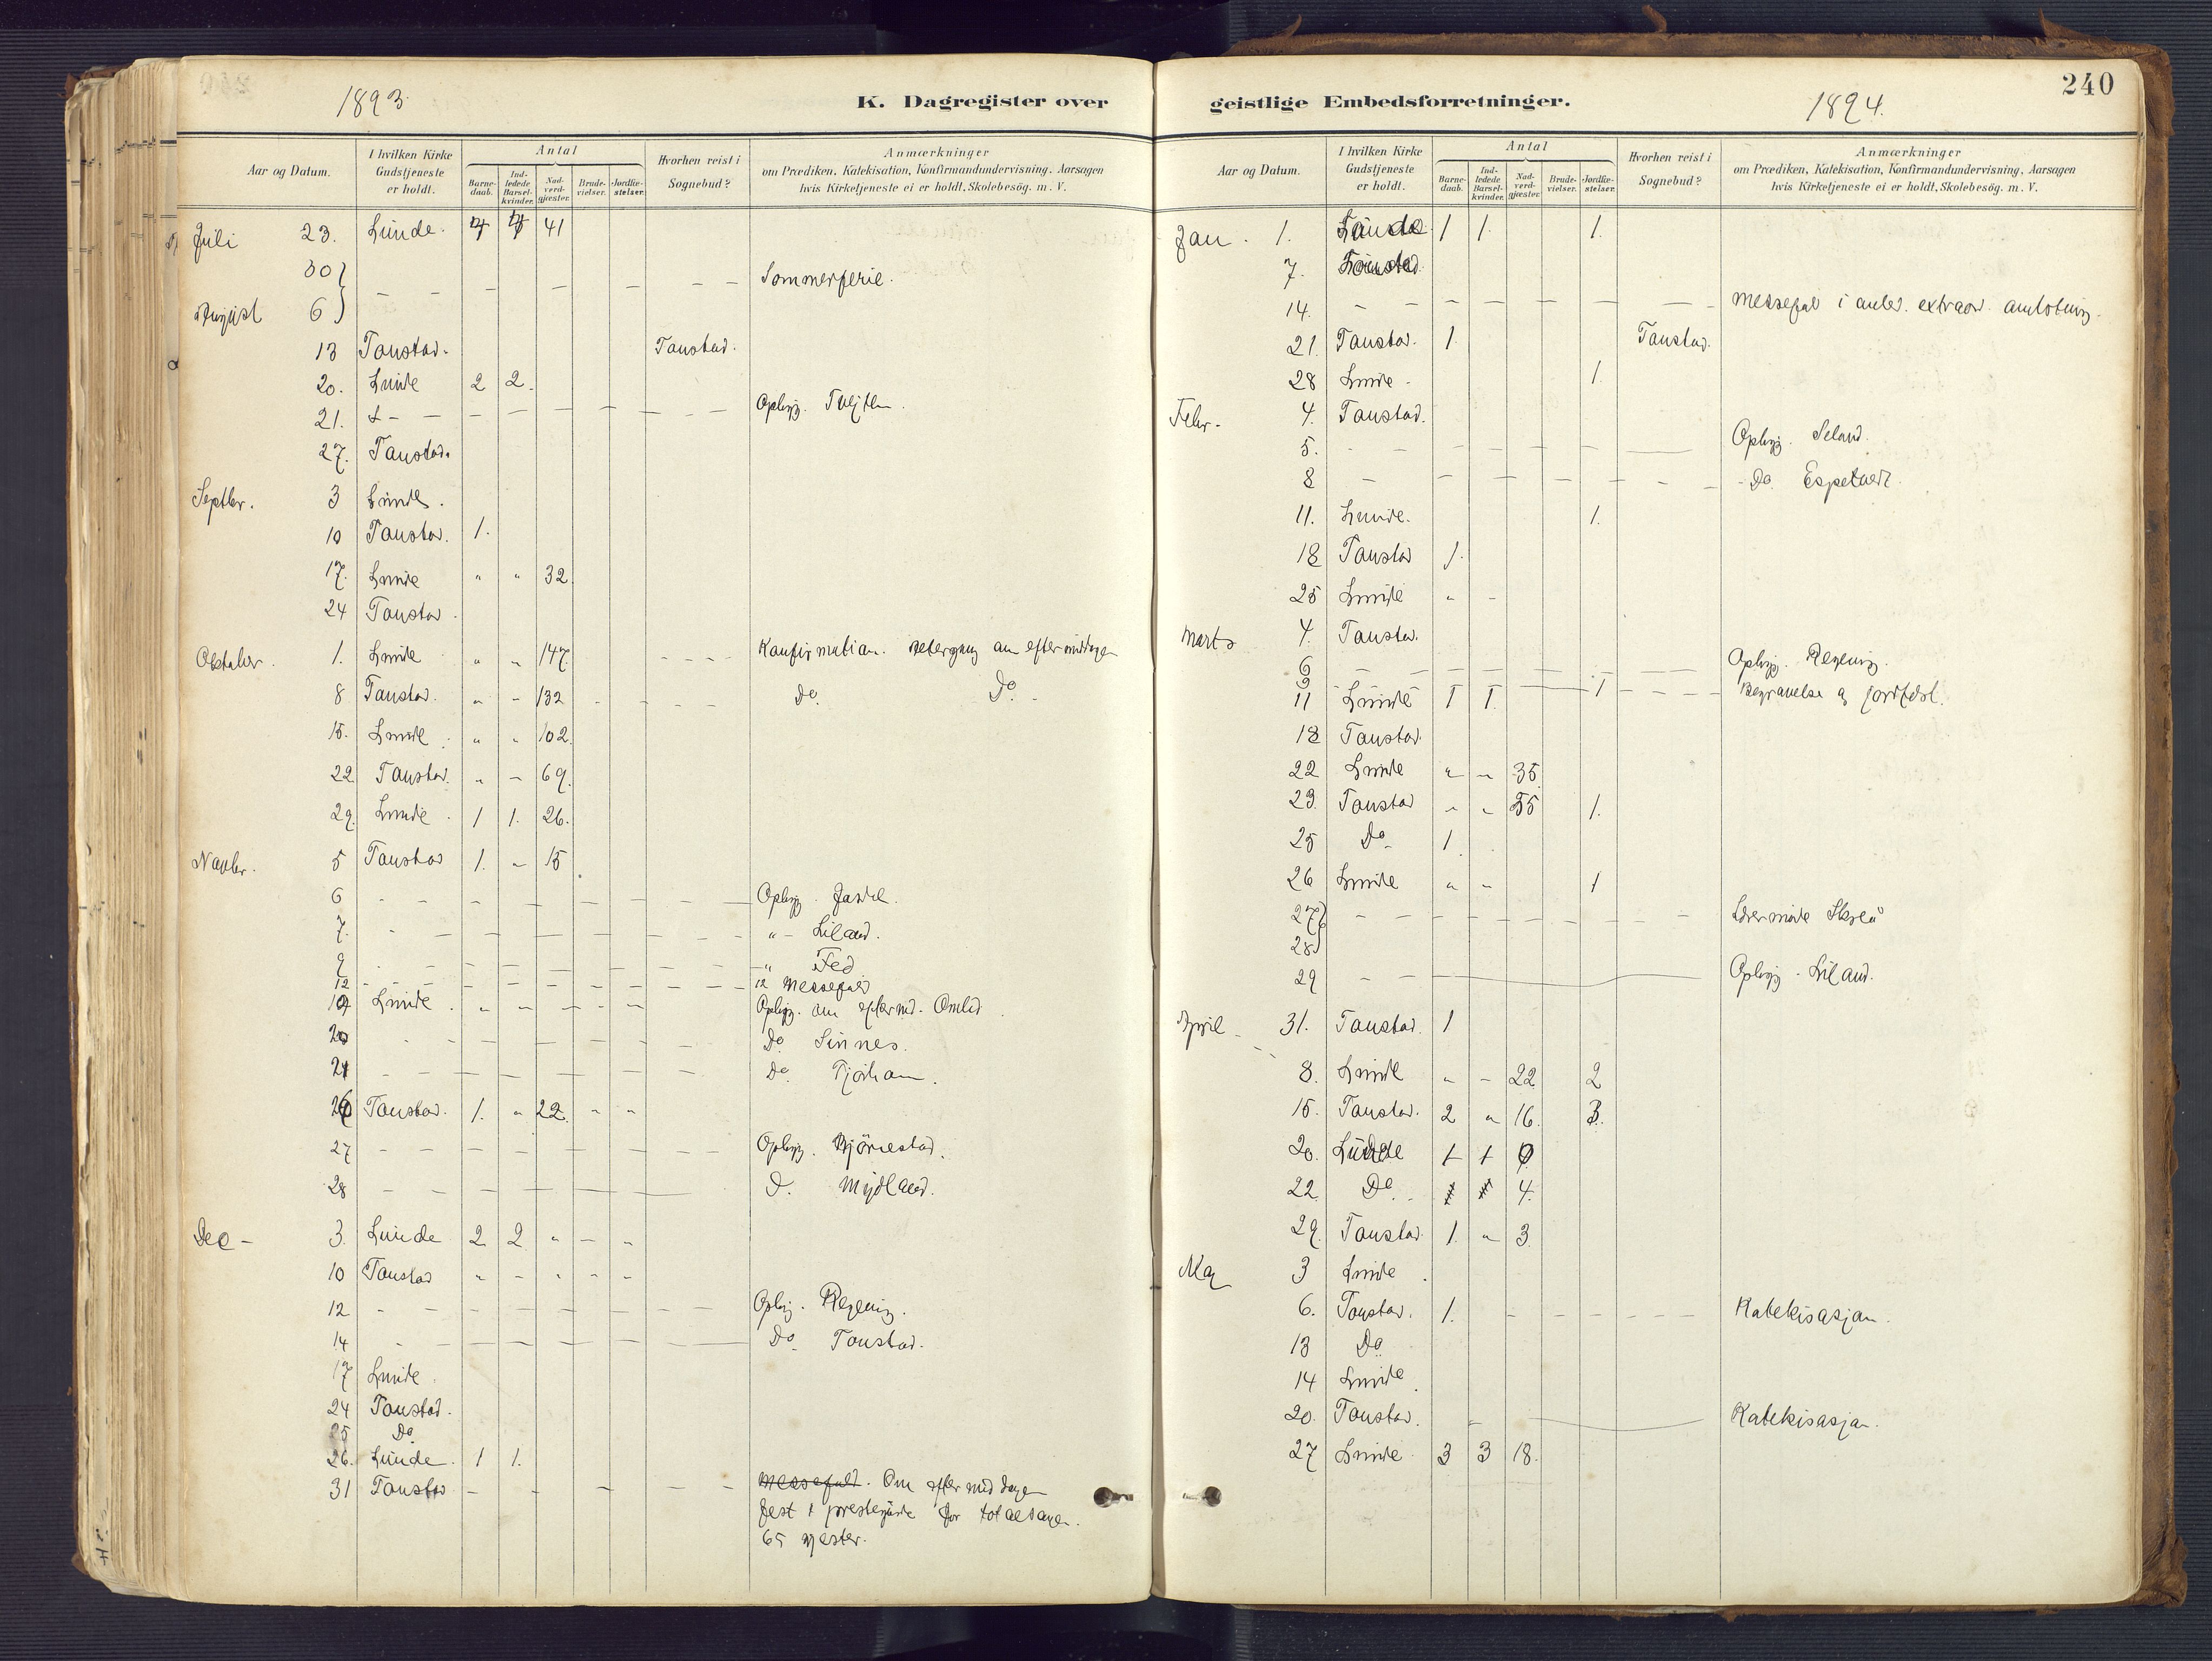 1893.
K. Dagregister over
Aar og Datum.
I hvilken Kirke Gudstjeneste er holdt.
Antal
Barne-daab.
Ind-ledede Barsel-kvinder.
Nad-verd-gjæster.
Brude-vielser.
Jordfæ-stelser.
Hvorhen reist i Sognebud?
Anmærkninger
om Prædiken, Katekisation, Konfirmandundervisning, Aarsagen
hvis Kirketjeneste ei er holdt, Skolebesög. m. V.
Juli 23. Lunde. 41
30 } - - - - - - - Sommerferie.
August 6 }
13 Tonstad. Tonstad.
20. Lunde 2 2.
21. - - - - - - - Oplysg.
27. Tonstad.
Septbr. 3 Lunde.
10 Tonstad. 1.
17. Lunde " " 32
24 Tonstad.
Oktober. 1. Lunde " " 147. - - - - Konfirmation. om eftermiddagen
8 Tonstad. " - 132 - - - - Do. Do. -
15. Lunde. " " 102.
22 Tonstad. " - 69.
29. Lunde. 1 1. 26.
Novbr. 5 Tonstad 1. - 15
6 - - - - - - - Oplysg. Josdal.
7. - - - - - - - " - Liland.
9 - - - - - - - " Fed
12 - - - - - - - 12 Messefald
19 Lunde. " - - - - Oplysg. om efterm. Omlid.
20 - - - - - - - Do. Sinnes.
21 - - - - - - - Do. Tjörhom.
26 Tonstad. 1. " 22. - -
27 - - - - - - - Oplysg. Björnestad.
28 - - - - - - - D. Mydland.
Dec - 3. Lunde 2 2 " - "
10 Tonstad " - " - -
12 - - - - - - - Oplysg.
14 - - - - - - - Do. Tonstad.
17 Lunde.
24 Tonstad.
25 Do
26. Lunde. 1 1.
31 Tonstad - - - - - Messefald. Om eftermiddagen
fest i prestegården for totalsagen.
65 gjester.
240
geistlige Embedsforretninger.
1894.
Aar og Datum.
I hvilken Kirke Gudstjeneste er holdt.
Antal
Barne-daab.
Ind-ledede Barsel-kvinder.
Nad-verd-gjæster.
Brude-vielser.
Jordfæ-stelser.
Hvorhen reist i Sognebud?
Anmærkninger
om Prædiken, Katekisation, Konfirmandundervisning, Aarsagen
hvis Kirketjeneste ei er holdt, Skolebesög. m. V.
Jan. 1. Lunde 1 1. 1.
7. Tonstad.
14. - - - - - - - Messefald i anled. extraord. amtsting.
21. Tonstad. 1. Tonstad.
28 Lunde. 1.
Febr. 4. Tonstad.
5. - - - - - - Oplysg. Seland.
8 - - - - - - - Do. Espetvedt.
11. Lunde. 1.
18 Tonstad 1.
25 Lunde " -
Marts 4. Tonstad.
6 - - - - - - - Oplysg.
9 - - - - 1 - - - Begravelse og jordfæst.
11 Lunde 1 1.
18 Tonstad.
22 Lunde " " 35.
23. Tonstad " " 55 1.
25 Do. 1.
26 Lunde " " 1
27 } - - - - - - -
28 }
29 - - - - - Oplysg. Liland.
April 31. Tonstad. 1
8. Lunde " - 22 2
15. Tonstad. 2 " 16. 3.
20. Lunde 1 1 0
22. Do. 4.
29. Tonstad. 1. " 3.
Maj 3 Lunde.
6. Tonstad. 1. - - - - Katekisasjon.
13 Do.
14 Lunde.
20. Tonstad. - - - Katekisasjon.
27 Lunde. 3 3 18.